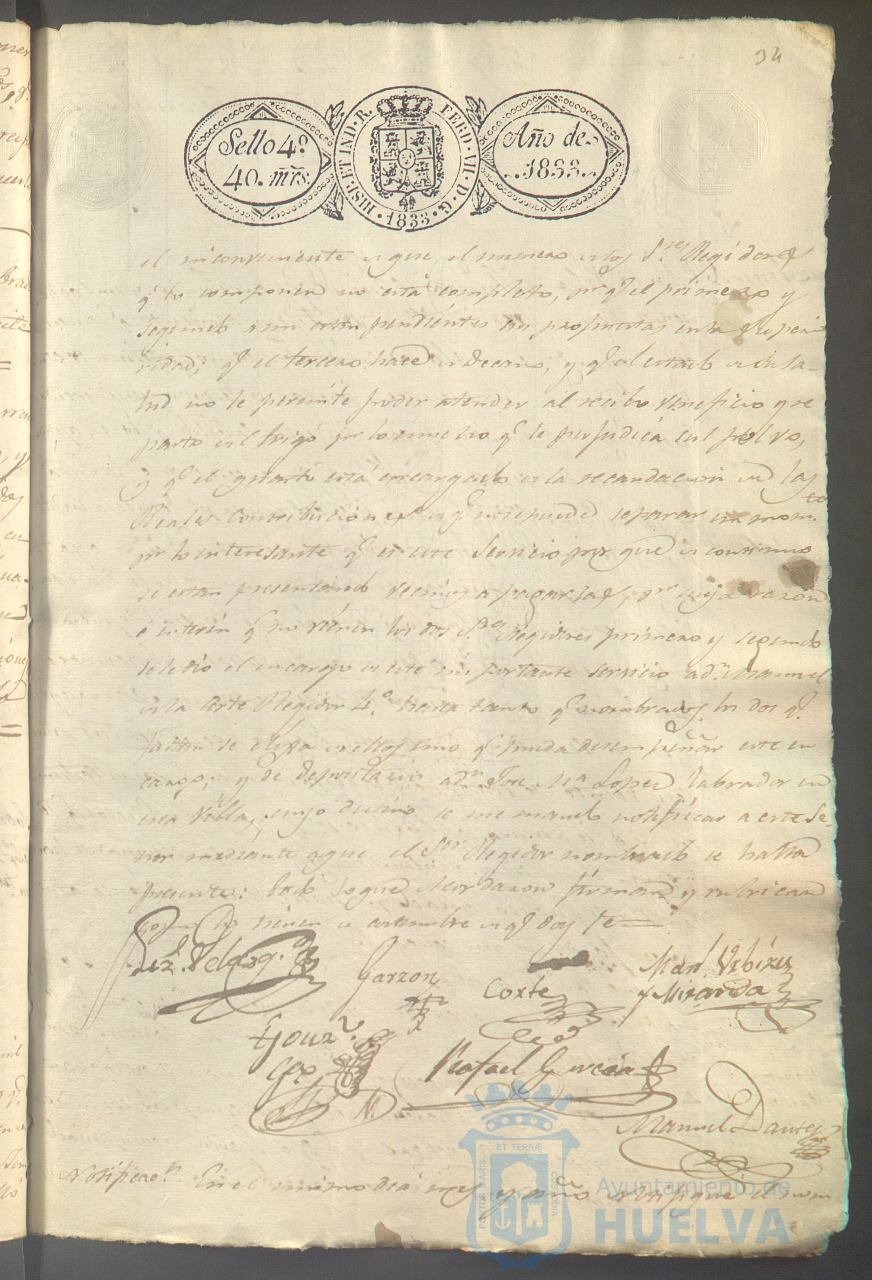 34
Sello 4º
40. mrs.
HISP. ET IND. R. FERD. VII. D. G. 1833
Año de
1833.
el inconveniente es que el numero de los S.res Regidores
q.e lo componen no está completo, p.r q.e el primero y
segundo aun estan pendientes sus propuestas en la superi
ridad; q.e el tercero hace de Decano, y q.e el estado de su sa-
lud no le permite poder atender al recibo veneficio y re
parto del trigo por lo mucho q.e le perjudica el polvo,
y q.e el quarto está encargado de la recaudacion de las
Reales Contribuciones de q.e no se puede separar un mom.to
por lo interesante q.e es este Servicio por que de continuo
se estan presentando vecinos a pagarlas, p.r cuya razon
é interin q.e no vienen los dos S.res Regidores primero y segundo
se le dió el encargo de este importante servicio a d.n Manuel
de la Corte Regidor 4.º hasta tanto q.e nombrados los dos q.e
faltan se elija de ellos uno q.e pueda desempeñar este en
cargo; y de Depositario a d.n José M.a Lopez labrador en
esta Villa, cuyo destino se me mandó notificar a este Se-
ñor mediante a que el S.or Regidor nombrado se halla
presente: todo lo que Acordaron firman y rubrican
segun lo tienen de costumbre de q.e Doy fe =
Velazq.
Garzon
Corte
Man.l Urbizu
y Miranda
Gonz.z
Rafael Garcia
Manuel Dantes
Notificac.n En el mismo dia mes y año
ET TERRÆ
Ayuntamiento de
HUELVA